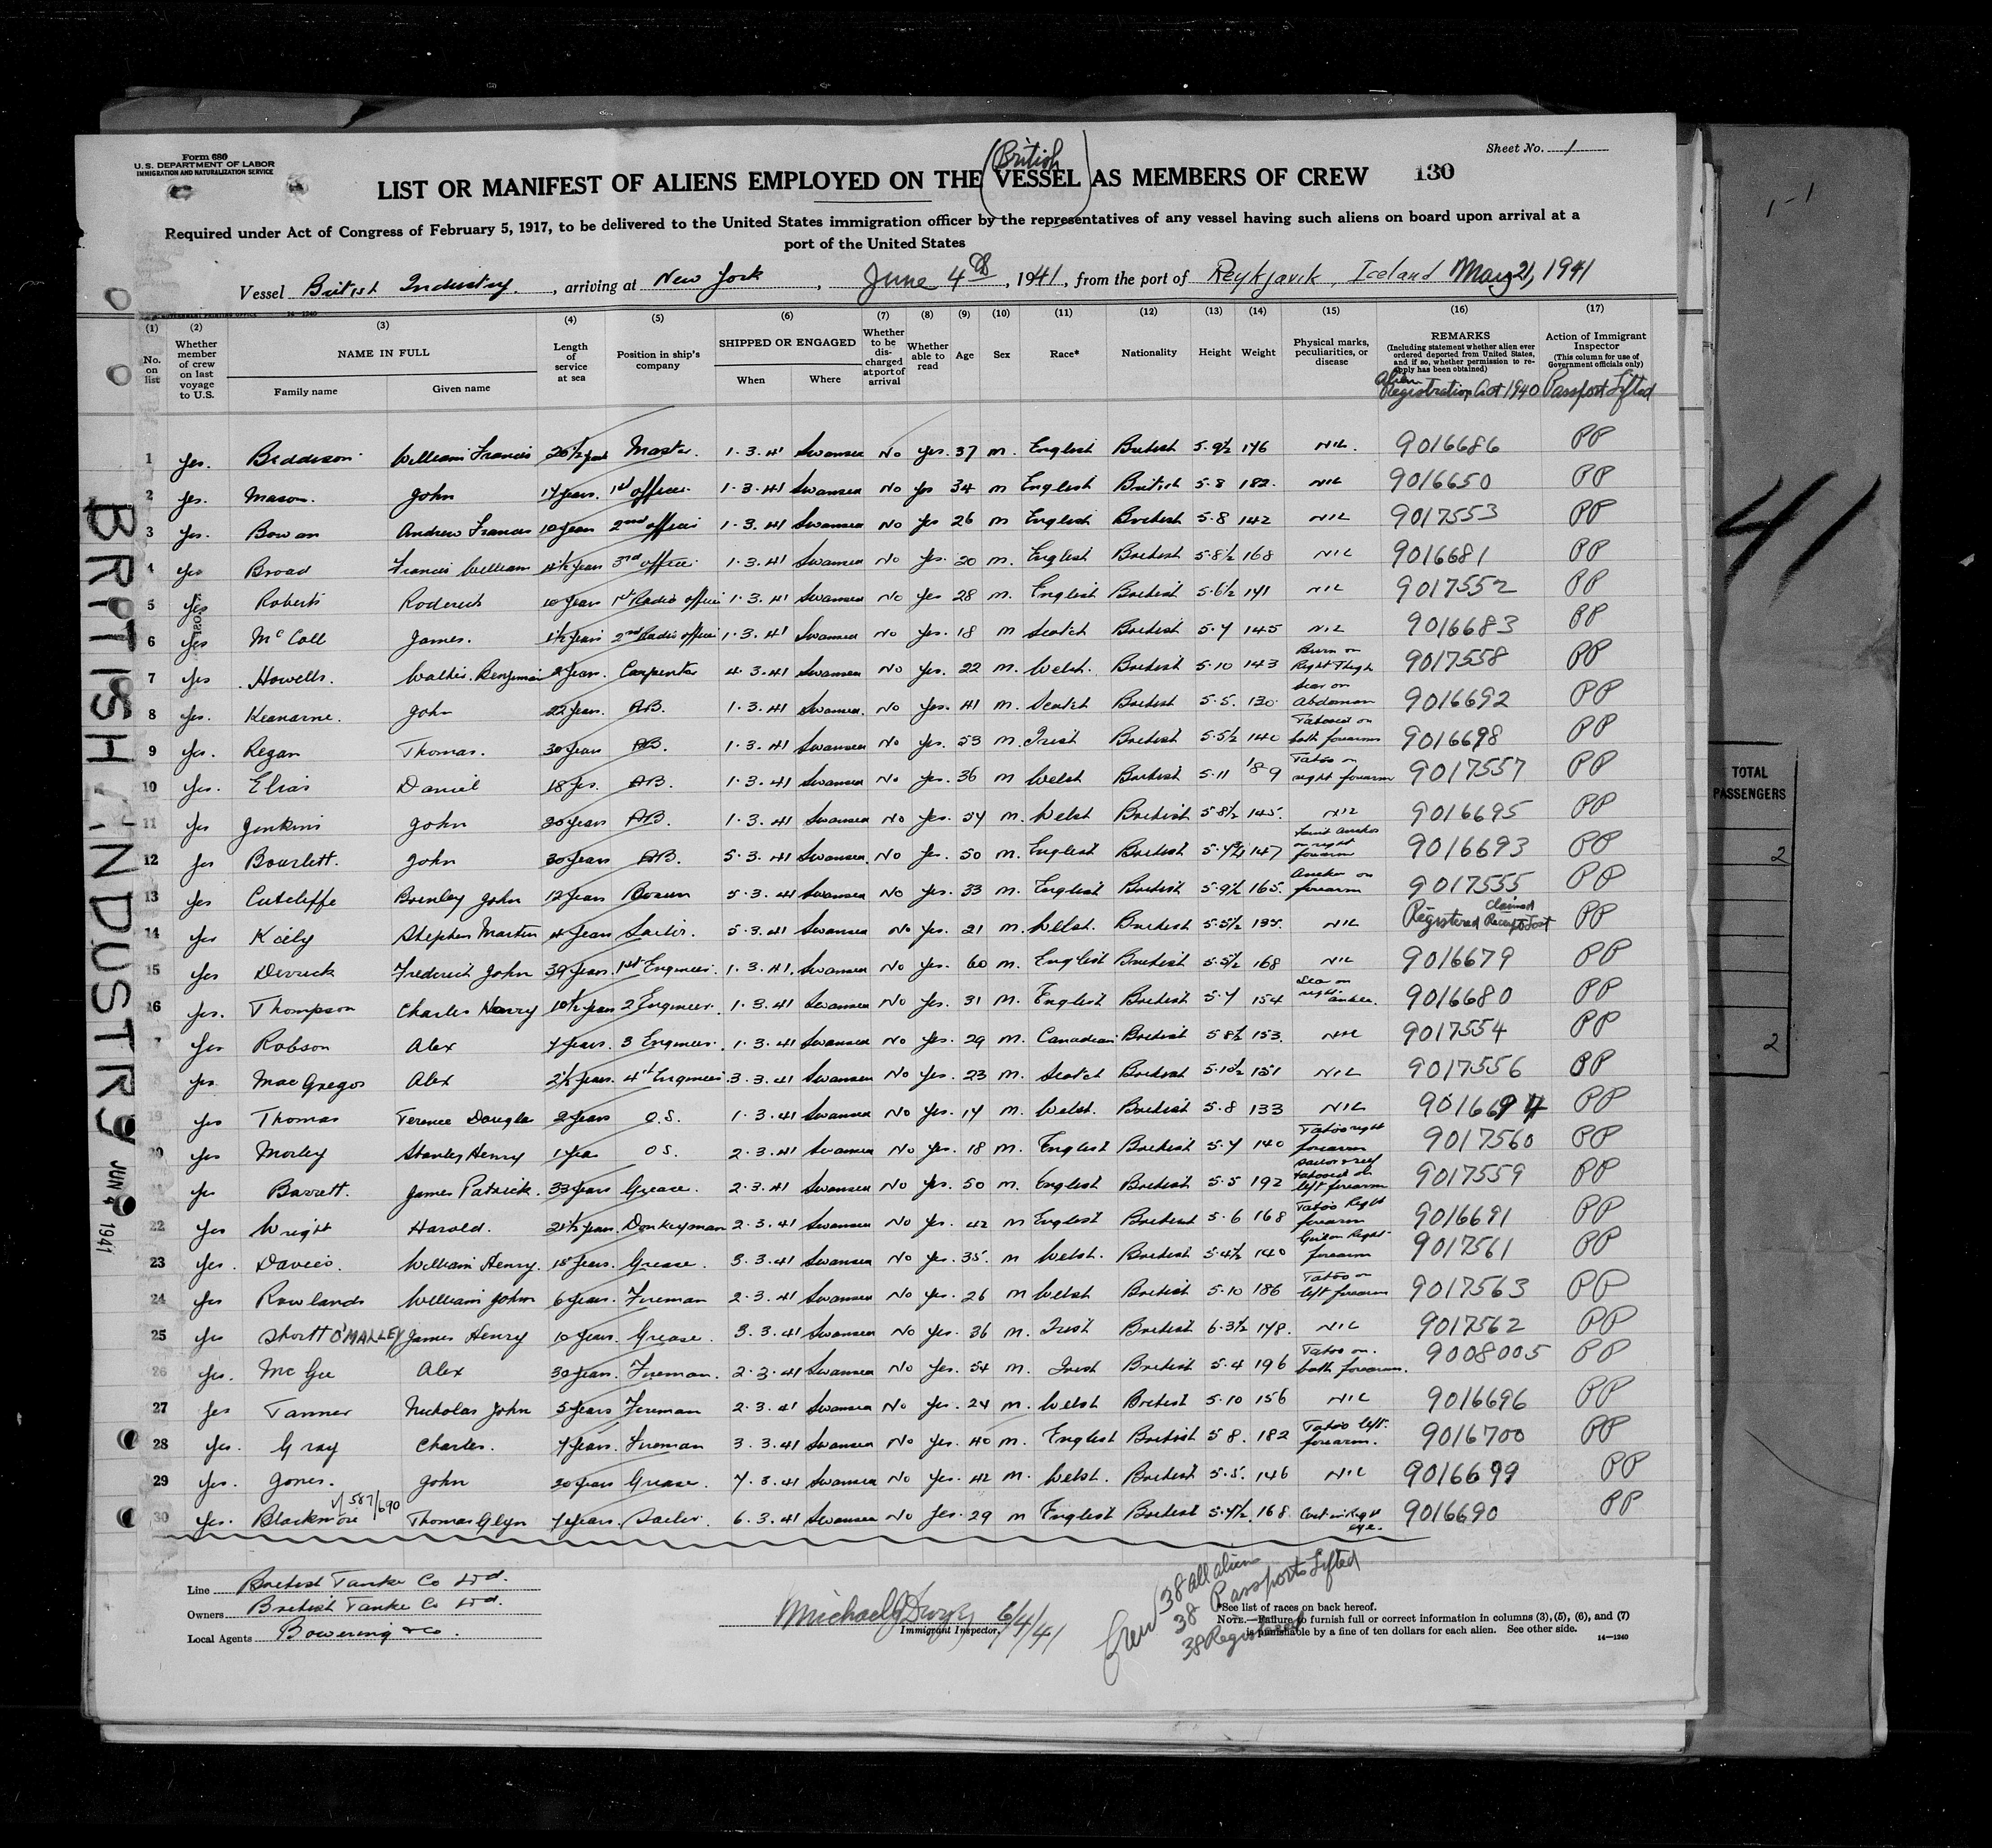 Form 680
U. S. DEPARTMENT OF LABOR
IMMIGRATION AND NATURALIZATION SERVICE
Sheet No. 1
(British)
LIST OR MANIFEST OF ALIENS EMPLOYED ON THE VESSEL AS MEMBERS OF CREW 130
Required under Act of Congress of February 5, 1917, to be delivered to the United States immigration officer by the representatives of any vessel having such aliens on board upon arrival at a
port of the United States
Vessel British Industry. , arriving at New York , June 4th , 1941, from the port of Reykjavik, Iceland May 21, 1941
(1) (2) (3) (4) (5) (6) (7) (8) (9) (10) (11) (12) (13) (14) (15) (16) (17)
No. on list
Whether member of crew on last voyage to U.S.
NAME IN FULL
Family name Given name
Length of service at sea
Position in ship's company
SHIPPED OR ENGAGED
When Where
Whether to be discharged at port of arrival
Whether able to read
Age Sex Race* Nationality Height Weight
Physical marks, peculiarities, or disease
REMARKS
(Including statement whether alien ever ordered deported from United States, and if so, whether permission to reapply has been obtained)
Alien Registration Act 1940
Action of Immigrant Inspector
(This column for use of Government officials only)
Passport Lifted
1 yes. Beddison William Francis 20½ years Master. 1.3.41 Swansea No yes. 37 m. English British 5.9½ 176 NIL. 9016686 PP
2 yes. Mason. John 17 years. 1st officer. 1.3.41 Swansea No yes 34 m English British 5.8 182. NIL 9016650 PP
3 yes. Bowan Andrew Francis 10 years 2nd officer 1.3.41 Swansea No yes 26 m English British 5.8 142 NIL 9017553 PP
4 yes Broad Francis William 4½ years 3rd officer. 1.3.41 Swansea No yes. 20 m. English British 5.8½ 168 NIL 9016681 PP
5 yes Roberts Roderick 10 years 1st Radio officer 1.3.41 Swansea No yes 28 m. English British 5.6½ 141 NIL 9017552 PP
6 yes McCall James. 1½ years 2nd Radio officer 1.3.41 Swansea No yes. 18 m Scotch British 5.7 145 NIL 9016683 PP
7 yes Howells. Walter Benjamin 2 years. Carpenter 4.3.41 Swansea No yes. 22 m. Welsh. British 5.10 143 Burn on Right Thigh 9017558 PP
8 yes. Keanarne. John 22 years. AB. 1.3.41 Swansea. No yes. 41 m. Scotch British 5.5. 130 Scar on Abdomen 9016692 PP
9 yes. Regan Thomas. 30 years AB. 1.3.41 Swansea No yes. 53 m. Irish British 5.5½ 140 Tatooed on both forearms 9016698 PP
10 yes. Elias Daniel 18 yrs. AB. 1.3.41 Swansea No yes. 36 m Welsh British 5.11 189 Tatoo on right forearm 9017557 PP
11 yes Jenkins John 30 years AB. 1.3.41 Swansea No yes. 54 m. Welsh British 5.8½ 145. NIL 9016695 PP
12 yes Bourlett. John 30 years AB. 5.3.41 Swansea. No yes. 50 m. English British 147 on right forearm 9016693 PP
13 yes Cutcliffe Brinley John 12 years Bosun 5.3.41 Swansea No yes. 33 m. English British 5.9½ 165. Anchor on forearm 9017555 PP
14 yes Kiely Stephen Martin 4 years Sailor. 5.3.41 Swansea No yes. 21 m. Welsh. British 5.5½ 135. NIL Registered Claimed Receipt Lost PP
15 yes Derrick Frederick John 39 years. 1st Engineer. 1.3.41. Swansea No yes. 60 m. English British 5.5½ 168 NIL 9016679 PP
16 yes. Thompson Charles Harry 10½ years 2 Engineer. 1.3.41 Swansea No yes. 31 m. English British 5.7 154 Scar on right ankle. 9016680 PP
17 yes Robson Alex 7 years. 3 Engineer. 1.3.41 Swansea No yes. 29 m. Canadian British 5 8½ 153. NIL 9017554 PP
18 yes. MacGregor Alex 2½ years. 4th Engineer. 3.3.41 Swansea No yes. 23 m. Scotch British 5.10½ 151 NIL 9017556 PP
19 yes Thomas Terence Douglas 2 years O.S. 1.3.41 Swansea No yes. 17 m. Welsh. British 5.8 133 NIL 9016694 PP
20 yes Morley Stanley Henry 1 year O S. 2.3.41 Swansea No yes. 18 m. English British 5.7 140 Tatoo right forearm 9017560 PP
21 yes Barrett. James Patrick. 33 years Greaser. 2.3.41 Swansea No yes. 50 m. English British 5.5 192 tatooed on left forearm 9017559 PP
22 yes Wright Harold. 21½ years. Donkeyman 2.3.41 Swansea No yes. 42 m English British 5.6 168 Tatoo Right forearm 9016691 PP
23 yes. Davies. William Henry. 15 years. Greaser. 3.3.41 Swansea No yes. 35. m Welsh. British 5.4½ 140 Right forearm 9017561 PP
24 yes Rowlands William John 6 years. Fireman 2.3.41 Swansea No yes. 26 m Welsh British 5.10 186 Tatoo on left forearm 9017563 PP
25 yes Shortt O'MALLEY James Henry 10 years. Greaser. 3.3.41 Swansea No yes. 36 m. Irish British 6.3½ 178. NIL 9017562 PP
26 yes. McGee Alex 30 years. Fireman. 2.3.41 Swansea No yes. 54 m. Irish British 5.4 196 Tatoo on. both forearms. 9008005 PP
27 yes Tanner Nicholas John 5 years Fireman 2.3.41 Swansea No yes. 24 m. Welsh British 5.10 156 NIL 9016696 PP
28 yes. Gray Charles. 7 years. Fireman 3.3.41 Swansea No yes. 40 m. English British 5 8. 182 Tatoo left. forearm. 9016700 PP
29 yes. Jones. John 30 years Greaser. 7.3.41 Swansea No yes. 42 m. Welsh. British 5.5. 146 NIL 9016699 PP
30 yes. Blackmore 587/690 Thomas Glyn 7 years. Sailor. 6.3.41 Swansea No yes. 29 m English British 5.7½. 168 Cast in Right eye. 9016690 PP
Line British Tanker Co Ltd.
Owners British Tanker Co Ltd.
Local Agents Bowering & Co.
Michael J Dwyer 6/4/41
Immigrant Inspector.
Crew 38 all aliens
38 Passports Lifted
38 Registered
*See list of races on back hereof.
NOTE.—Failure to furnish full or correct information in columns (3), (5), (6), and (7)
is punishable by a fine of ten dollars for each alien. See other side.
14—1240
BRITISH INDUSTRY
JUN 4 1941
1-1
41
TOTAL
PASSENGERS
2
2